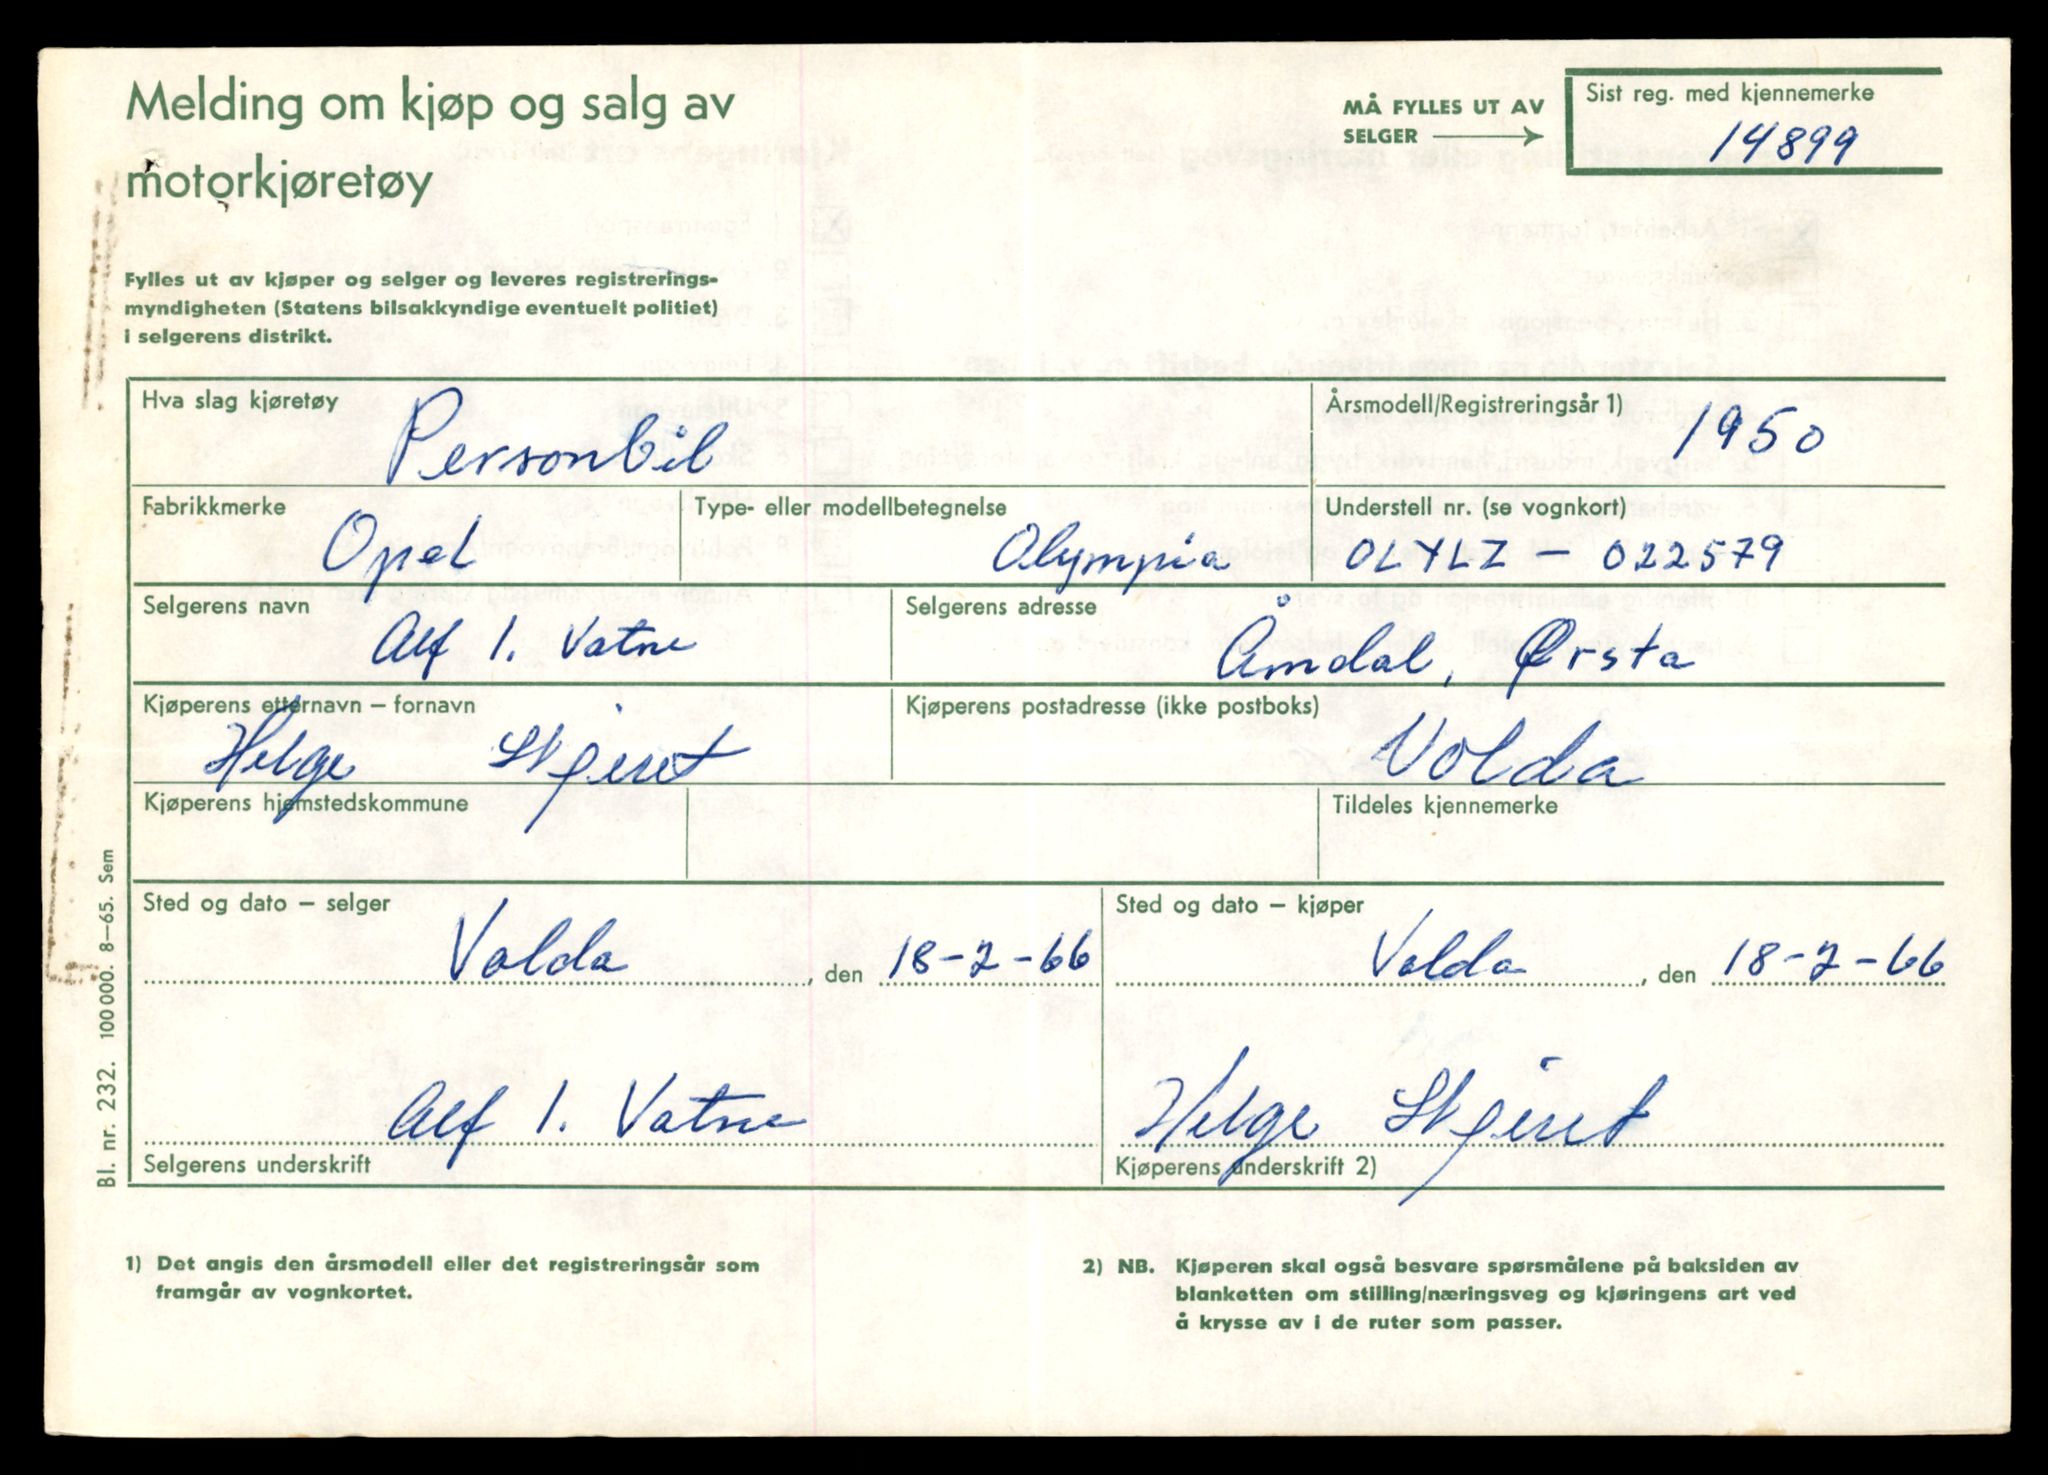 Melding om kjøp og salg av
motorkjøretøy
MÅ FYLLES UT AV
SELGER
Sist reg. med kjennemerke
14899
Fylles ut av kjøper og selger og leveres registrerings-
myndigheten (Statens bilsakkyndige eventuelt politiet)
i selgerens distrikt.
Hva slag kjøretøy
Personbil
Årsmodell/Registreringsår 1)
1950
Fabrikkmerke
Opel
Type- eller modellbetegnelse
Olympia
Understell nr. (se vognkort)
OLYLZ - 022579
Selgerens navn
Alf I. Vatne
Selgerens adresse
Åmdal, Ørsta
Kjøperens etternavn – fornavn
Helge Skjeret
Kjøperens postadresse (ikke postboks)
Volda
Kjøperens hjemstedskommune
Tildeles kjennemerke
Sted og dato – selger
Volda, den 18-2-66
Sted og dato – kjøper
Volda, den 18-2-66
Alf I. Vatne
Selgerens underskrift
Helge Skjeret
Kjøperens underskrift 2)
Bl. nr. 2232. 100 000. 8–65. Sem
1) Det angis den årsmodell eller det registreringsår som
framgår av vognkortet.
2) NB. Kjøperen skal også besvare spørsmålene på baksiden av
blanketten om stilling/næringsveg og kjøringens art ved
å krysse av i de ruter som passer.